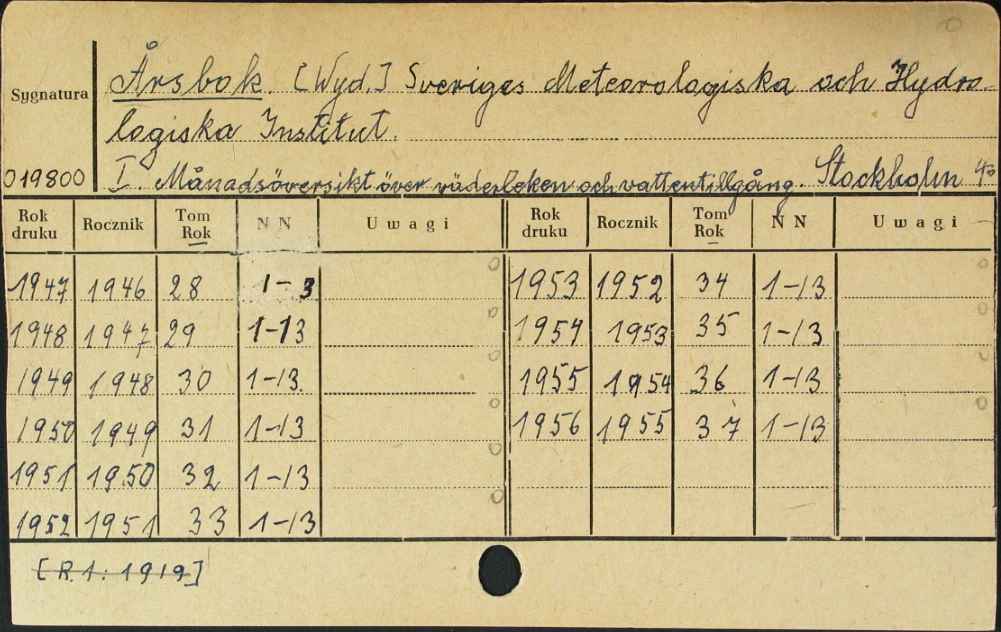 Sygnatura
Årsbok. [Wyd.] Sveriges Meteorologiska och Hydro-
logiska Institut.
019800 I. Månadsöversikt över väderleken och vattentillgång. Stockholm 4°
Rok druku Rocznik Tom Rok N N Uwagi Rok druku Rocznik Tom Rok N N Uwagi
1947 1946 28 1-3 1953 1952 34 1-13
1948 1947 29 1-13 1954 1953 35 1-13
1949 1948 30 1-13. 1955 1954 36 1-13
1950 1949 31 1-13 1956 1955 37 1-13
1951 1950 32 1-13
1952 1951 33 1-13
[R. 1: 1919]